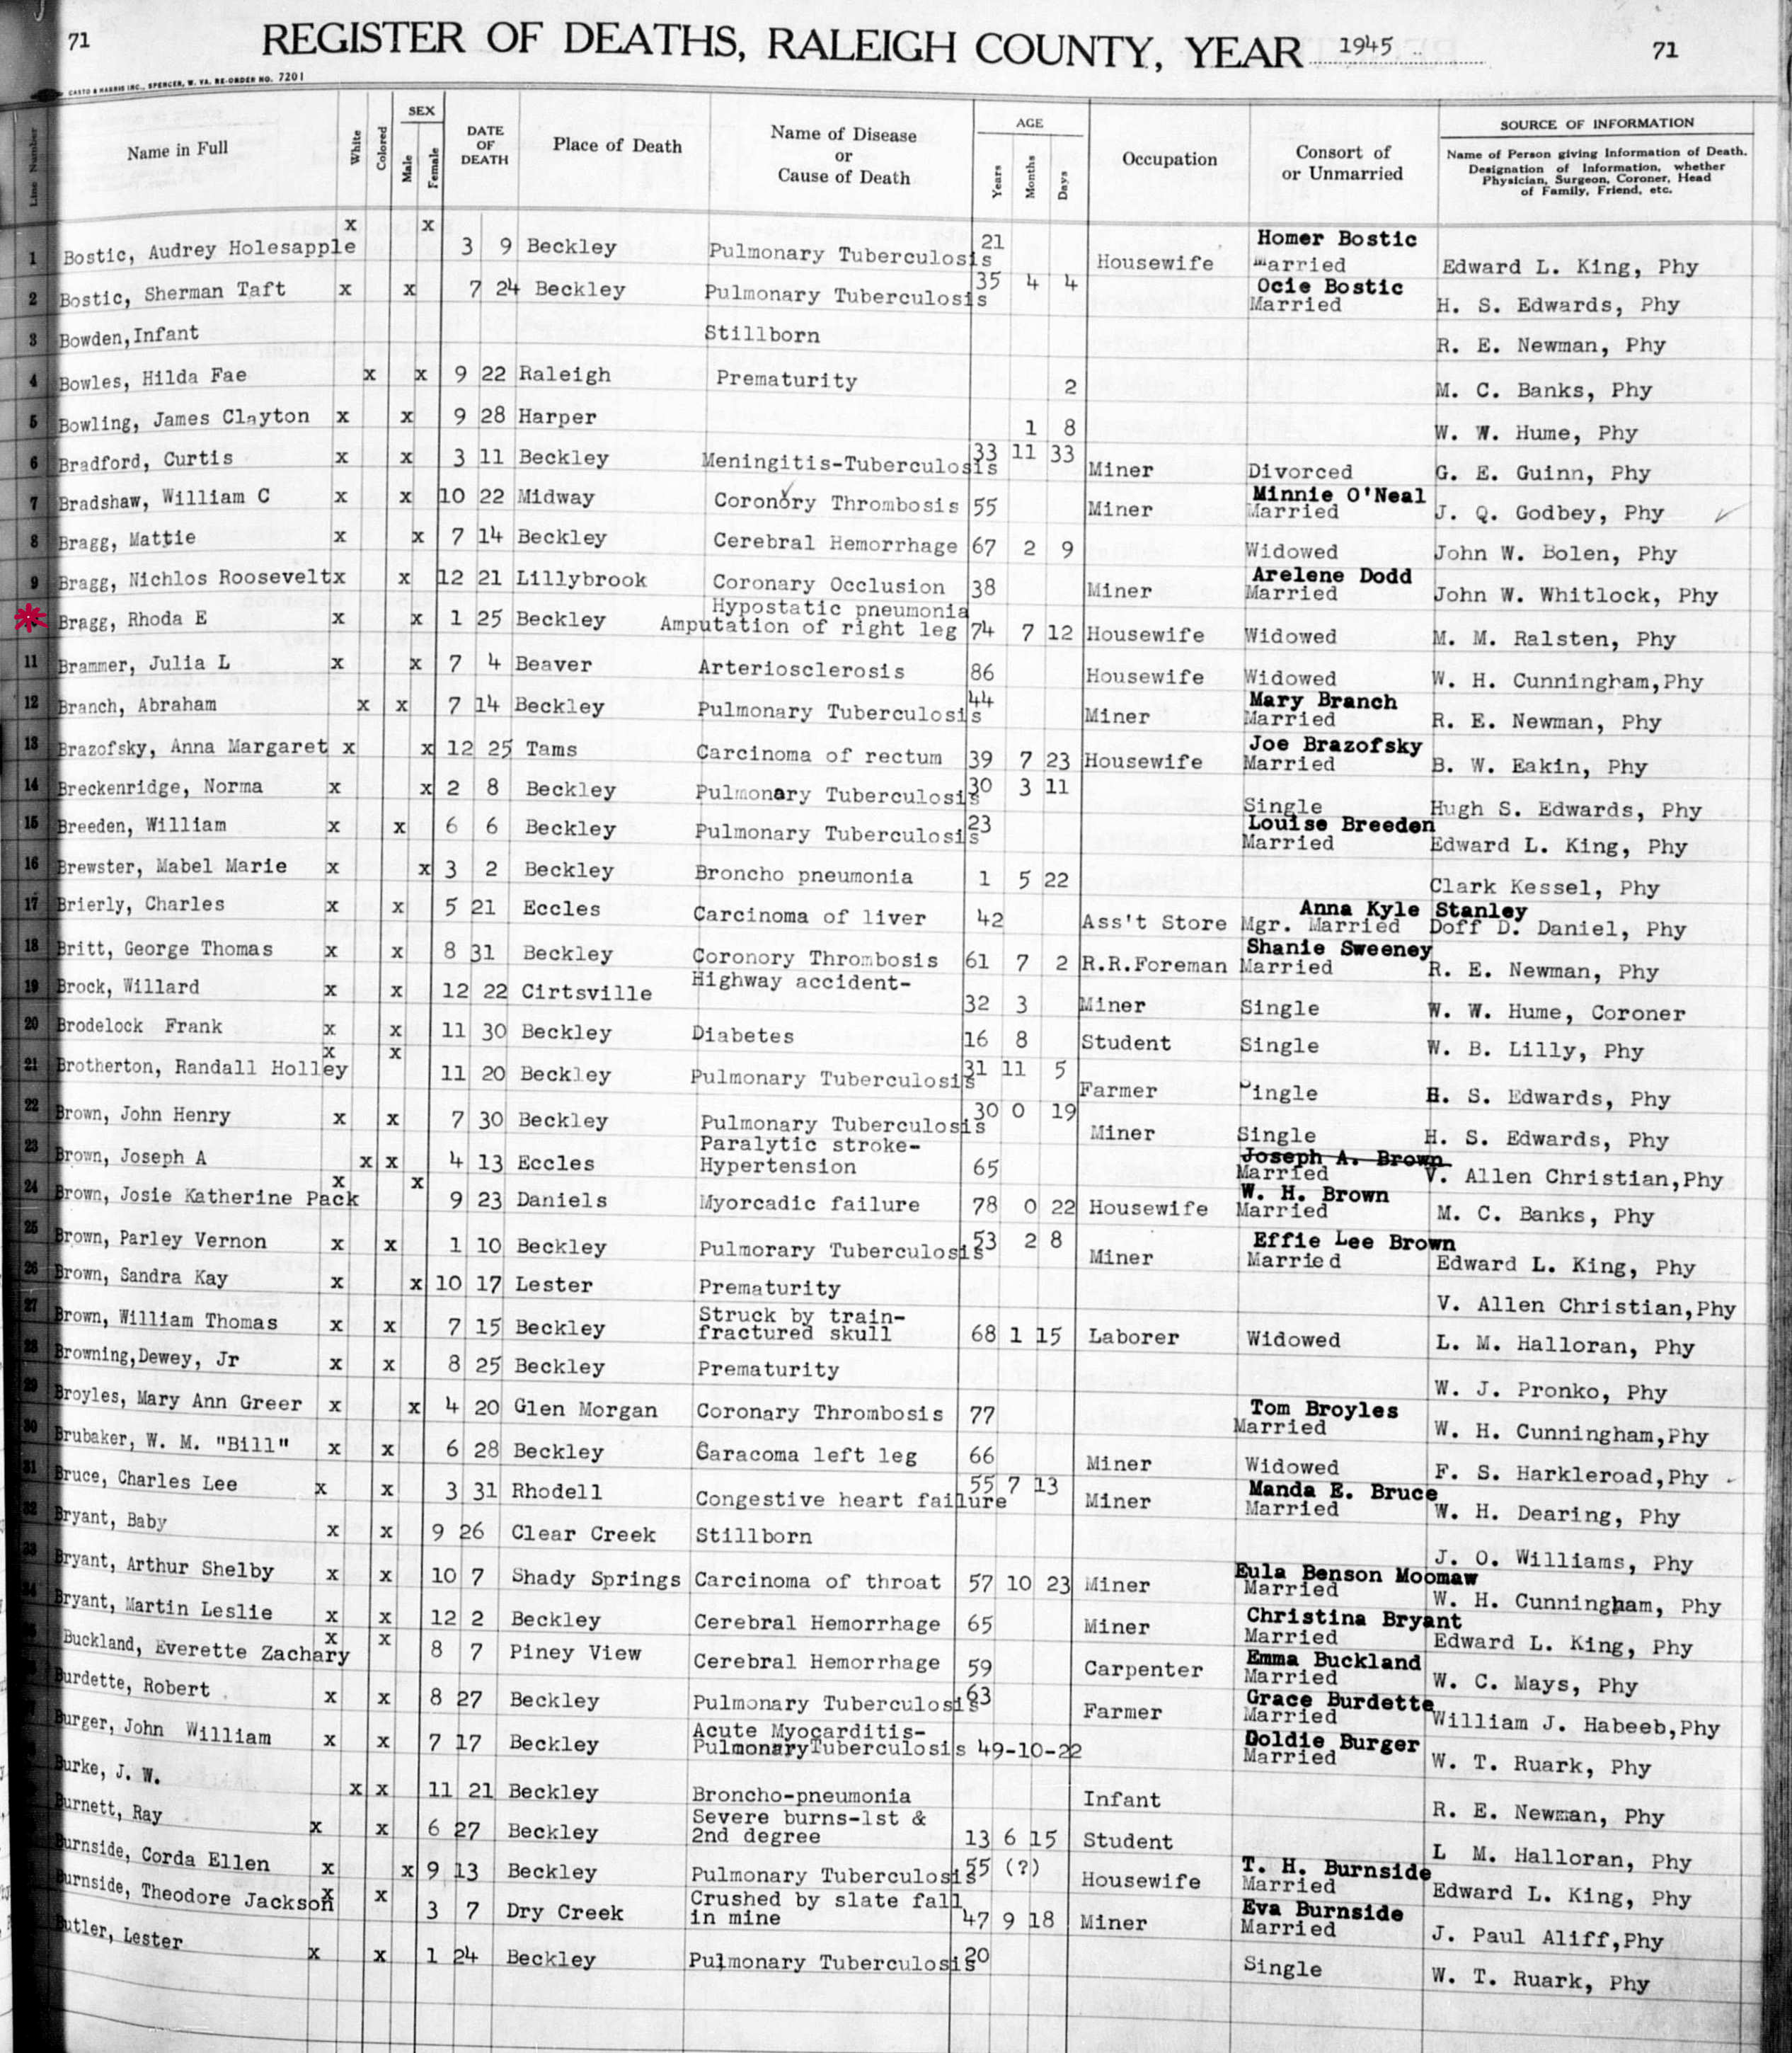 71 REGISTER OF DEATHS, RALEIGH COUNTY, YEAR 1945 71
CASTO & HARRIS INC., SPENCER, W. VA. RE-ORDER NO. 7201
Line Number Name in Full White Colored SEX Male Female DATE OF DEATH Place of Death Name of Disease or Cause of Death AGE Years Months Days Occupation Consort of or Unmarried SOURCE OF INFORMATION
Name of Person giving Information of Death. Designation of Information, whether Physician, Surgeon, Coroner, Head of Family, Friend, etc.
1 Bostic, Audrey Holesapple x x 3 9 Beckley Pulmonary Tuberculosis 21 Housewife Homer Bostic Married Edward L. King, Phy
2 Bostic, Sherman Taft x x 7 24 Beckley Pulmonary Tuberculosis 35 4 4 Ocie Bostic Married H. S. Edwards, Phy
3 Bowden,Infant Stillborn R. E. Newman, Phy
4 Bowles, Hilda Fae x x 9 22 Raleigh Prematurity 2 M. C. Banks, Phy
5 Bowling, James Clayton x x 9 28 Harper 1 8 W. W. Hume, Phy
6 Bradford, Curtis x x 3 11 Beckley Meningitis-Tuberculosis 33 11 33 Miner Divorced G. E. Guinn, Phy
7 Bradshaw, William C x x 10 22 Midway Coronory Thrombosis 55 Miner Minnie O'Neal Married J. Q. Godbey, Phy
8 Bragg, Mattie x x 7 14 Beckley Cerebral Hemorrhage 67 2 9 Widowed John W. Bolen, Phy
9 Bragg, Nichlos Roosevelt x x 12 21 Lillybrook Coronary Occlusion 38 Miner Arelene Dodd Married John W. Whitlock, Phy
Bragg, Rhoda E x x 1 25 Beckley Hypostatic pneumonia Amputation of right leg 74 7 12 Housewife Widowed M. M. Ralsten, Phy
11 Brammer, Julia L x x 7 4 Beaver Arteriosclerosis 86 Housewife Widowed W. H. Cunningham,Phy
12 Branch, Abraham x x 7 14 Beckley Pulmonary Tuberculosis 44 Miner Mary Branch Married R. E. Newman, Phy
13 Brazofsky, Anna Margaret x x 12 25 Tams Carcinoma of rectum 39 7 23 Housewife Joe Brazofsky Married B. W. Eakin, Phy
14 Breckenridge, Norma x x 2 8 Beckley Pulmonary Tuberculosis 30 3 11 Single Hugh S. Edwards, Phy
15 Breeden, William x x 6 6 Beckley Pulmonary Tuberculosis 23 Louise Breeden Married Edward L. King, Phy
16 Brewster, Mabel Marie x x 3 2 Beckley Broncho pneumonia 1 5 22 Clark Kessel, Phy
17 Brierly, Charles x x 5 21 Eccles Carcinoma of liver 42 Ass't Store Mgr. Anna Kyle Stanley Married Doff D. Daniel, Phy
18 Britt, George Thomas x x 8 31 Beckley Coronory Thrombosis 61 7 2 R.R.Foreman Shanie Sweeney Married R. E. Newman, Phy
19 Brock, Willard x x 12 22 Cirtsville Highway accident- 32 3 Miner Single W. W. Hume, Coroner
20 Brodelock Frank x x 11 30 Beckley Diabetes 16 8 Student Single W. B. Lilly, Phy
21 Brotherton, Randall Holley x x 11 20 Beckley Pulmonary Tuberculosis 31 11 5 Farmer Single H. S. Edwards, Phy
22 Brown, John Henry x x 7 30 Beckley Pulmonary Tuberculosis 30 0 19 Miner Single H. S. Edwards, Phy
23 Brown, Joseph A x x 4 13 Eccles Paralytic stroke- Hypertension 65 Joseph A. Brown Married V. Allen Christian,Phy
24 Brown, Josie Katherine Pack x x 9 23 Daniels Myorcadic failure 78 0 22 Housewife W. H. Brown Married M. C. Banks, Phy
25 Brown, Parley Vernon x x 1 10 Beckley Pulmorary Tuberculosis 53 2 8 Miner Effie Lee Brown Married Edward L. King, Phy
26 Brown, Sandra Kay x x 10 17 Lester Prematurity V. Allen Christian,Phy
27 Brown, William Thomas x x 7 15 Beckley Struck by train- fractured skull 68 1 15 Laborer Widowed L. M. Halloran, Phy
28 Browning,Dewey, Jr x x 8 25 Beckley Prematurity W. J. Pronko, Phy
29 Broyles, Mary Ann Greer x x 4 20 Glen Morgan Coronary Thrombosis 77 Tom Broyles Married W. H. Cunningham,Phy
30 Brubaker, W. M. "Bill" x x 6 28 Beckley Saracoma left leg 66 Miner Widowed F. S. Harkleroad,Phy
31 Bruce, Charles Lee x x 3 31 Rhodell Congestive heart failure 55 7 13 Miner Manda E. Bruce Married W. H. Dearing, Phy
32 Bryant, Baby x x 9 26 Clear Creek Stillborn J. O. Williams, Phy
33 Bryant, Arthur Shelby x x 10 7 Shady Springs Carcinoma of throat 57 10 23 Miner Eula Benson Moomaw Married W. H. Cunningham, Phy
34 Bryant, Martin Leslie x x 12 2 Beckley Cerebral Hemorrhage 65 Miner Christina Bryant Married Edward L. King, Phy
Buckland, Everette Zachary x x 8 7 Piney View Cerebral Hemorrhage 59 Carpenter Emma Buckland Married W. C. Mays, Phy
Burdette, Robert x x 8 27 Beckley Pulmonary Tuberculosis 63 Farmer Grace Burdette Married William J. Habeeb,Phy
Burger, John William x x 7 17 Beckley Acute Myocarditis- PulmonaryTuberculosis 49-10-22 Goldie Burger Married W. T. Ruark, Phy
Burke, J. W. x x 11 21 Beckley Broncho-pneumonia Infant R. E. Newman, Phy
Burnett, Ray x x 6 27 Beckley Severe burns-1st & 2nd degree 13 6 15 Student L M. Halloran, Phy
Burnside, Corda Ellen x x 9 13 Beckley Pulmonary Tuberculosis 55 (?) Housewife T. H. Burnside Married Edward L. King, Phy
Burnside, Theodore Jackson x x 3 7 Dry Creek Crushed by slate fall in mine 47 9 18 Miner Eva Burnside Married J. Paul Aliff,Phy
Butler, Lester x x 1 24 Beckley Pulmonary Tuberculosis 20 Single W. T. Ruark, Phy